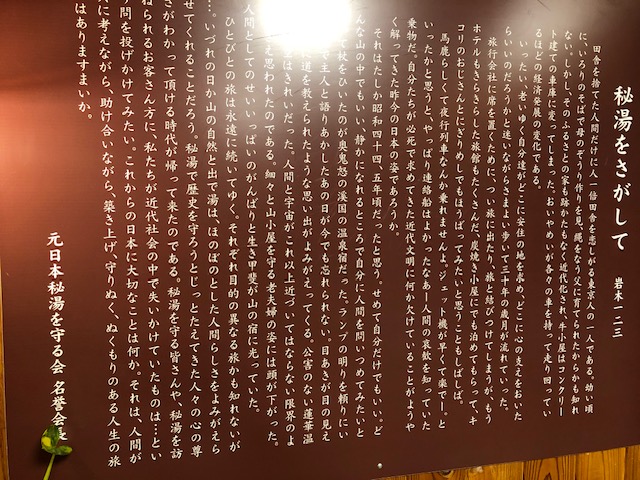 秘湯をさがして
岩木一二三
田舎を捨てた人間だけに人一倍田舎を恋しがる東京人の一人である。幼い頃
にいろりのそばで母のぞうり作りを見、縄をなう父に育てられたからかも知れ
ない。しかし、そのふるさとの家も跡かたもなく近代化され、牛小屋はコンクリー
ト建ての車庫に変ってしまった。おいやめいが各々の車を持って走り回ってい
るほどの経済発展の変化である。
いったい、老いゆく自分達がどこに安住の地を求め、どこに心の支えをおいた
らいいのだろうかと迷いながらさまよい歩いて三十年の歳月が流れていった。
旅行会社に席を置くために、つい旅に出たり、旅と結びつけてしまうが、もう
ホテルもきらきらした旅館もたくさんだ。炭焼き小屋にでも泊めてもらって、キ
コリのおじさんとにぎりめしでもほうばってみたいと思うこともしばしば。
馬鹿らしくて夜行列車なんか乗れませんよ。ジェット機が早くて楽でーと
いったかと思うと、やっぱり連絡船はよかったなあー人間の哀歓を知っていた
乗物だ。自分たちが必死で求めてきた近代文明に何か欠けていることがようや
く解ってきた昨今の日本の姿であろうか。
それはたしか昭和四十四、五年頃だったと思う。せめて自分だけでもいい。ど
んな山の中でもいい、静かになれるところで自分に人間を問いつめてみたいと
て杖をひいたのが奥鬼怒の渓国の温泉宿だった。ランプの明りを頼りにい
で主人と語りあかしたあの日が今でも忘れられない。目あきが目の見え
道を教えられたような思い出がよみがえってくる。公害のない蓮華温
はきれいだった。人間と宇宙がこれ以上近づいてはならない限界のよ
え思われたのである。細々と山小屋を守る老夫婦の姿には頭が下がった。
人間としてのせいいっぱいのがんばりと生き甲斐が山の宿に光っていた。
ひとびとの旅は永遠に続いてゆく。それぞれ目的の異なる旅かも知れないが
…。いづれの日か山の自然と出で湯は、ほのぼのとした人間らしさをよみがえら
せてくれることだろう。秘湯で歴史を守ろうとじっとたえてきた人々の心の尊
さがわかって頂ける時代が帰って来たのである。秘湯を守る皆さんや、秘湯を訪
ねられるお客さん方に、私たちが近代社会の中で失いかけていたものは…とい
う問を投げかけてみたい。これからの日本に大切なことは何か。それは、人間が
に考えながら、助け合いながら、築き上げ、守りぬく、ぬくもりのある人生の旅
はありますまいか。
元日本秘湯を守る会 名誉会長